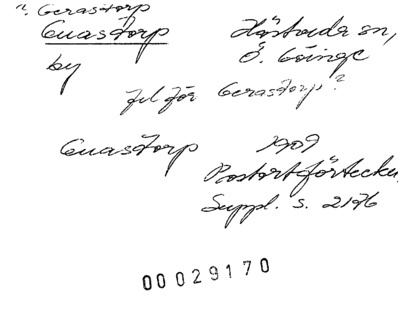 ? Gerastorp
Guastorp Hästveda sn,
by Ö. Göinge
fel för Gerastorp?
Guastorp 1909
Postortförteckn.
Suppl. s. 2176
00029170